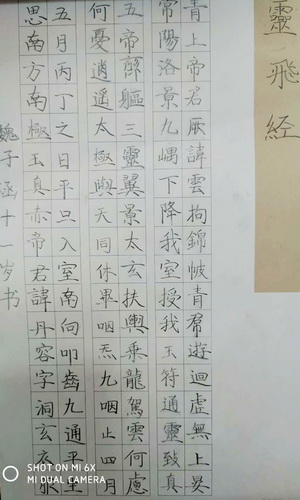 靈飛經
青上帝君厥諱雲拘錦帔青帬遊迴虛無上晏
常陽洛景九嵎下降我室授我玉符通靈致真
五帝齊軀三靈翼景太玄扶輿乘龍駕雲何慮
何憂逍遙太極與天同休畢咽炁九咽止四月
五月丙丁之日平旦入室南向叩齒九通平坐
思南方南極玉真赤帝君諱丹容字洞玄衣服
魏子涵十一岁书
SHOT ON MI 6X
MI DUAL CAMERA